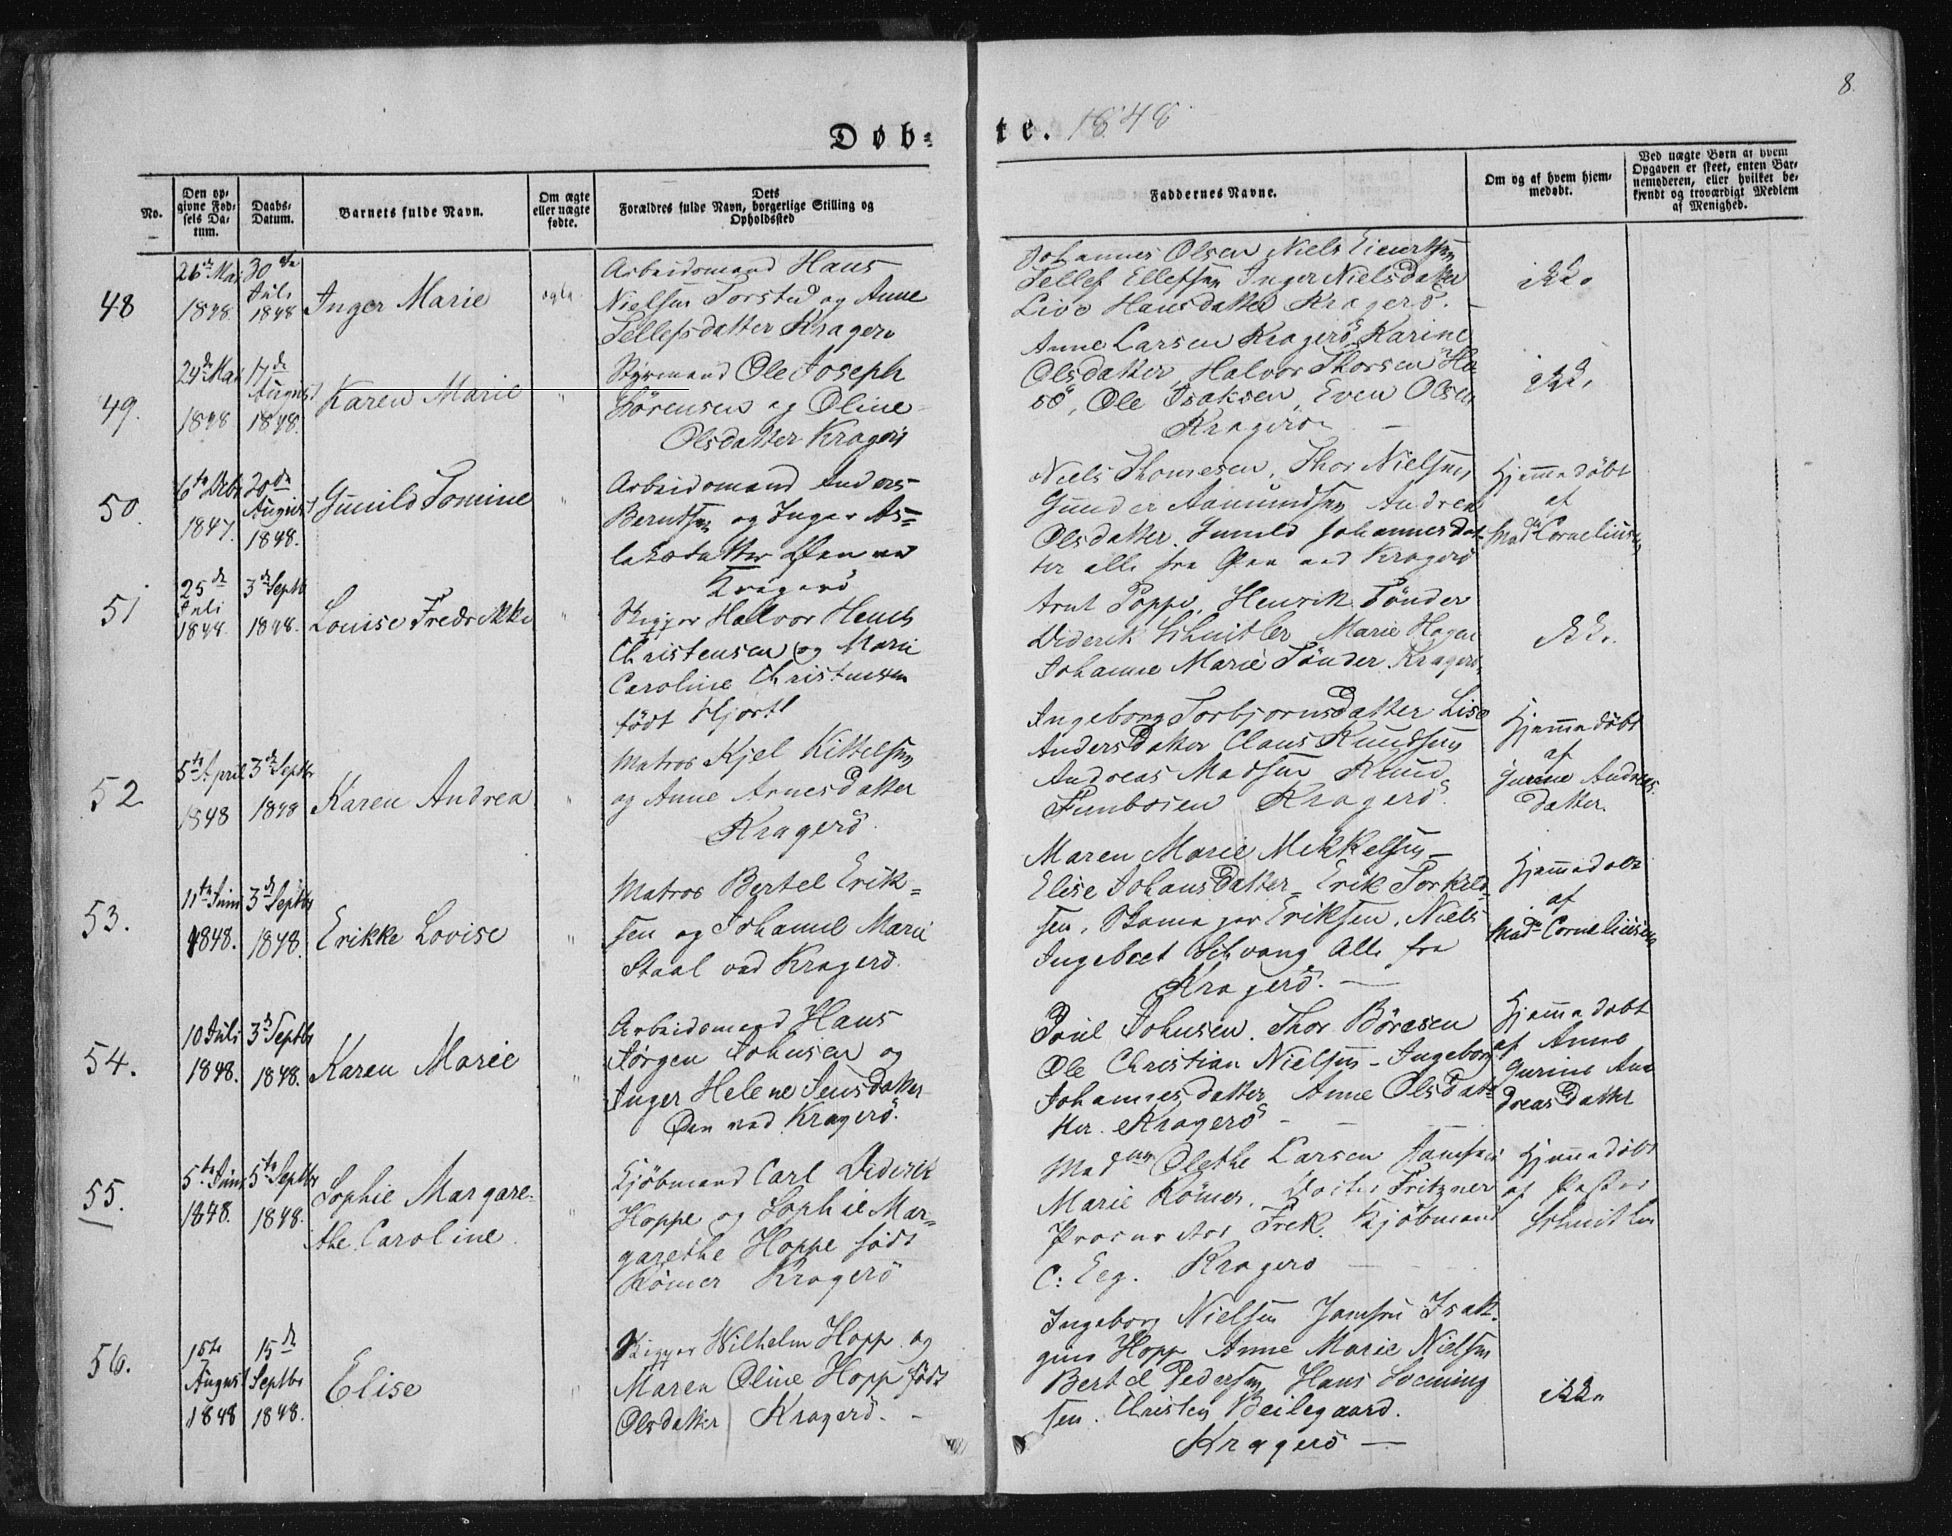 8.
Døb= te. 1848
No.
Den op-
givne Fød-
sels Da-
tum.
Daabs-
Datum.
Barnets fulde Navn.
Om ægte
eller uægte
fødte.
Dets
Forældres fulde Navn, borgerlige Stilling og
Opholdssted
Faddernes Navne.
Om og af hvem hjem-
medøbt.
Ved uægte Børn af hvem
Opgaven er skeet, enten Bar-
nemoderen, eller hvilket be-
kjendt og troværdigt Medlem
af Menighed.
48
26de Mai
1848.
30te
Juli
1848
Inger Marie
ægte.
Arbeidsmand Hans
Nielsen Torsted og Anne
Tellefsdatter Kragerø
Johannes Olsen Niels
Tellef Ellefsen Inger Nielsdatter
Live Hansdatter Kragerö.
ikke
49.
Mai
1848
17de
August
1848.
Karen Marie
"
Styrmand Ole Joseph
Sörensen og Oline
Olsdatter Kragerö
Anne Larsen Kragerö Karine
Olsdatter Halvor Thorsen
Ole Isaksen, Even Olsen
Kragerö
ikke,
50.
6te Debr
1847.
20de
August
1848.
Gunild Tomine
"
Arbeidsmand Anders
Berndsen og Inger As=
laksdatter Øen ved
Kragerö
Niels Thomesen, Thor Nielsen,
Gunder Aamundsen Andrea
Olsdatter. Gunild Johannesdat-
ter alle fra Øen ved Kragerö
Hjemmedöbt
af
Mad Corneliusen
51
25de
Juli
1848.
3de Septb
1848.
Louise Fredrikke
"
Skipper Halvor
Christensen og Marie
Caroline Christensen
födt Hjort
Arnt Poppe, Henrik Tönder
Diderik Schnitler Marie Hagen
Johanne Marie Tönder. Kragerö,
ikke.
52
5te April
1848
3de Septbr
1848
Karen Andrea
"
Matros Kjel Kittelsen
og Anne Arnesdatter
Kragerö.
Ingeborg Torbjornsdatter Lise
Andersdatter Claus Knudsen
Andreas Madsen Knud
Kragerö.
Hjemmedöbt
af
Gurine Andreas-
datter.
53.
11te Juni
1848.
3de Septbr
1848.
Erikke Lovise
"
Matros Bertel Erik=
sen og Johanne Marie
Staal ved Kragerö.
Maren Marie Mikkelsen
Elise Johansdatter Erik Torkild-
sen, Eriksen, Niels
Ingebret Alle fra
Kragerö.
Hjemmedöbt
af
Mad Corneliusen
54.
10 Juli
1848.
3de Septbr
1848.
Karen Marie
"
Arbeidsmand Hans
Jørgen Johnsen og
Inger Helene Jensdatter
Øen ved Kragerö.
Poul Johnsen. Thor Böresen
Ole Christian Nielsen - Ingeborg
Johannesdatter Anne Olsdat=
ter. Kragerö
Hjemmedöbt
af Anne
Gurine An
dreasdatter
55.
5te Juni
1848.
5te Septbr
1848.
Sophie Margare-
the Caroline.
"
Kjöbmand Carl Diderik
Hoppe og Sophie Mar=
garethe Hoppe födt
Römer Kragerö
Mad Olethe Larsen Jomfru
Marie Römer. Fritzner
Procurator Frek. Kjöbmand
C: Eeg. Kragerö
Hjemmedöbt
af Pastor
Schnitler
56.
15te
August
1848
15de
Septbr
1848.
Elise
"
Skipper Wilhelm Hopp og
Maren Oline Hopp födt
Olsdatter Kragerö.
Ingeborg Nielsen Jomfru
Hopp Anne Marie Nielsen
Bertel Pedersen, Hans
sen. Christen Beilegaard.
Kragerö
ikke